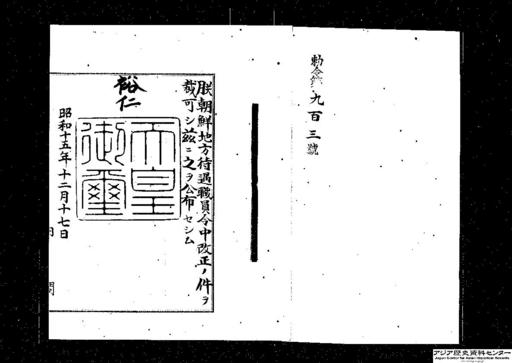 勅令第九百三號
朕朝鮮地方待遇職員令中改正ノ件ヲ
裁可シ茲ニ之ヲ公布セシム
裕仁
天皇御璽
昭和十五年十二月十七日
内閣
アジア歴史資料センター
Japan Center for Asian Historical Records